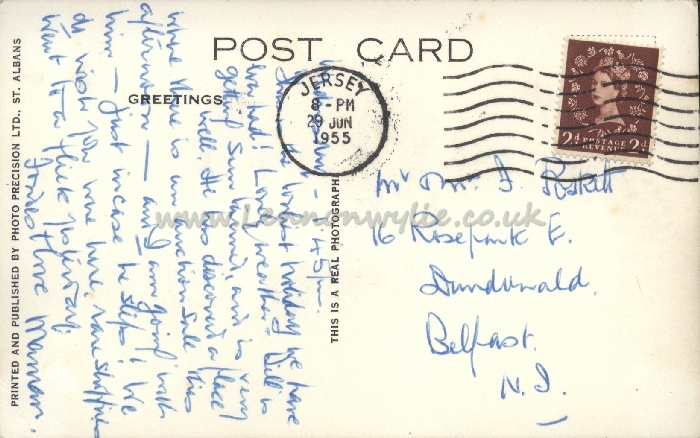 POST CARD
GREETINGS
JERSEY
8 - PM
29 JUN
1955
2d POSTAGE 2d
REVENUE
PRINTED AND PUBLISHED BY PHOTO PRECISION LTD., ST. ALBANS
THIS IS A REAL PHOTOGRAPH
www.Lennonwylie.co.uk
45pm.
the holiday we have
ever had! Lovely weather - Bill is
getting sun tanned, and is very
well. He has discovered a place
where there is an auction sale this
afternoon — and I am going with
him — just incase he slips! We
do wish you were here
went to a yesterday.
Fondest love Mamam.
Mr & Mrs J. Poskett
16 Rosepark E.
Dundonald.
Belfast.
N. I.